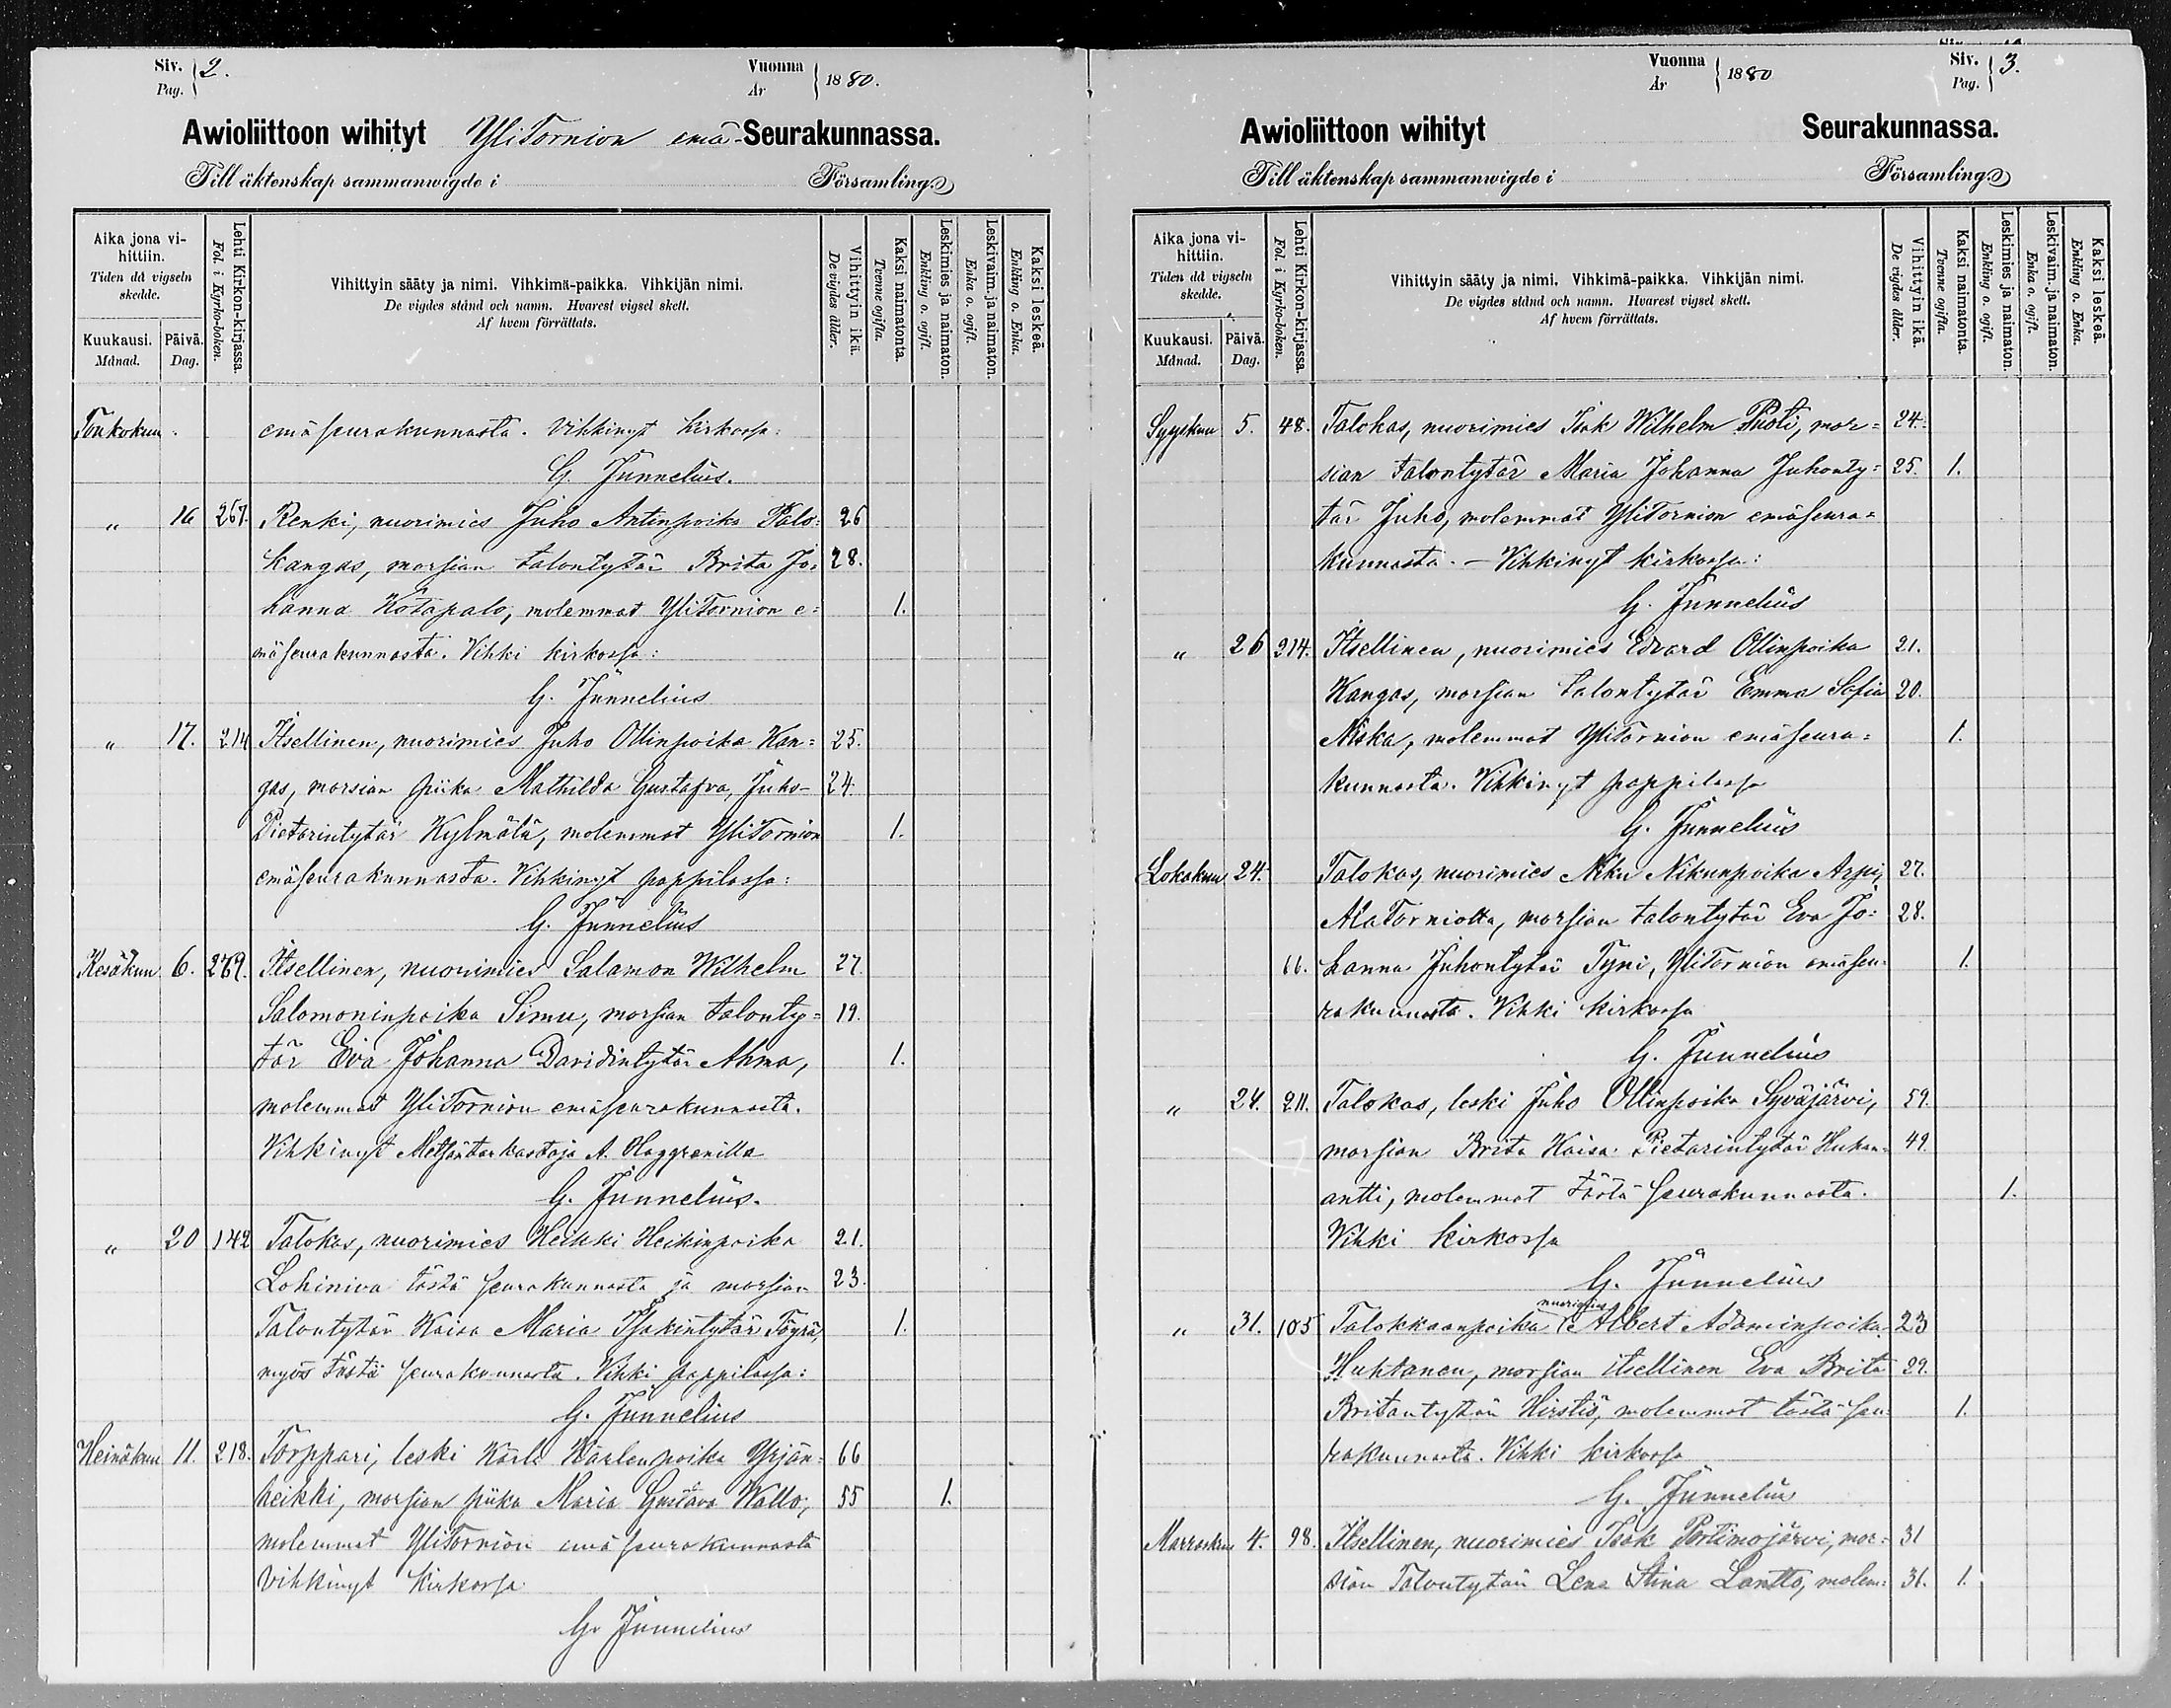 Siv. 2.
Pag.
Vuonna 1880.
År
Awioliittoon wihityt YliTornion emä-Seurakunnassa.
Till äktenskap sammanwigde i Församling.
Aika jona vi-
hittiin.
Tiden då vigseln
skedde.
Kuukausi. Päivä.
Månad. Dag.
Lehti Kirkon-kirjassa.
Fol. i Kyrko-boken.
Vihittyin sääty ja nimi. Vihkimä-paikka. Vihkijän nimi.
De vigdes stånd och namn. Hvarest vigsel skett.
Af hvem förrättats.
Vihittyin ikä.
De vigdes ålder.
Kaksi naimatonta.
Tvenne ogifta.
Leskimies ja naimaton.
Enkling o. ogift.
Leskivaim. ja naimaton.
Enka o. ogift.
Kaksi leskeä.
Enkling o. Enka.
Toukokuu. emäseurakunnasta. Vihkinyt kirkossa:
G. Junnelius.
" 16 267. Renki, nuorimies Juho Antinpoika Palo= 26
kangas, morsian talontytär Brita Jo= 28.
hanna Kotapalo, molemmat YliTornion e= 1.
mäseurakunnasta. Vihki kirkossa:
G. Junnelius
" 17. 214 Itsellinen, nuorimies Juho Ollinpoika Kan= 25.
gas, morsian piika Mathilda Gustafva, Juho- 24.
Pietarintytär Kylmälä, molemmat YliTornion 1.
emäseurakunnasta. Vihkinyt pappilassa:
G. Junnelius
Kesäkuu 6. 279. Itsellinen, nuorimies Salamon Wilhelm 27.
Salomoninpoika Simu, morsian talonty= 19.
tär Eva Johanna Davidintytär Ahma, 1.
molemmat YliTornion emäseurakunnasta.
Vihkinyt Metsäntarkastaja A. Haggrenilla
G. Junnelius.
" 20 142 Talokas, nuorimies Heikki Heikinpoika 21.
Lohiniva tästä seurakunnasta ja morsian 23.
Talontytär Kaisa Maria Isakintytär Töyrä, 1.
myös tästä seurakunnasta. Vihki pappilassa:
G. Junnelius
Heinäkuu 11. 218. Torppari, leski Kārle Kārlenpoika Yrjän= 66
heikki, morsian piika Maria Gustava Wallo, 55 1.
molemmat YliTornion emä seurakunnasta
vihkinyt kirkossa
G. Junnelius
Vuonna 1880
År
Siv. 3.
Pag.
Awioliittoon wihityt Seurakunnassa.
Till äktenskap sammanwigde i Församling.
Aika jona vi-
hittiin.
Tiden då vigseln
skedde.
Kuukausi. Päivä.
Månad. Dag.
Lehti Kirkon-kirjassa.
Fol. i Kyrko-boken.
Vihittyin sääty ja nimi. Vihkimä-paikka. Vihkijän nimi.
De vigdes stånd och namn. Hvarest vigsel skett.
Af hvem förrättats.
Vihittyin ikä.
De vigdes ålder.
Kaksi naimatonta.
Tvenne ogifta.
Leskimies ja naimaton.
Enkling o. ogift.
Leskivaim. ja naimaton.
Enka o. ogift.
Kaksi leskeä.
Enkling o. Enka.
Syyskuu 5. 48. Talokas, nuorimies Isak Wilhelm Puoti, mor= 24.
sian talontytär Maria Johanna Juhonty= 25. 1.
tär Juho, molemmat YliTornion emäseura=
kunnasta. - Vihkinyt kirkossa:
G. Junnelius
" 26 214. Itsellinen, nuorimies Edvard Ollinpoika 21.
Kangas, morsian talontytär Emma Sofia 20.
Niska, molemmat YliTornion emäseura= 1.
kunnasta. Vihkinyt pappilassa
G. Junnelius
Lokakuu 24. Talokas, nuorimies Niku Nikunpoika Arpi, 27.
AlaTorniolta, morsian talontytär Eva Jo= 28.
66. hanna Juhontytär Tyni, YliTornion emäseu= 1.
rakunnasta. Vihki kirkossa
G. Junnelius
" 24. 211. Talokas, leski Juho Ollinpoika Syväjärvi, 59.
morsian Brita Kaisa Pietarintytär Hukan= 49.
antti, molemmat tästä seurakunnasta. 1.
Vihki kirkossa
G. Junnelius
nuorimies
" 31. 105 Talokkaanpoika Albert Adaminpoika 23
Huhtanen, morsian itsellinen Eva Brita 29.
Britantytär Hirstiö, molemmat tästä seu= 1.
rakunnasta. Vihki kirkossa
G. Junnelius
Marraskuu 4. 98. Itsellinen, nuorimies Isak Portimojärvi, mor= 31
sian Talontytär Lena Stina Lantto, molem= 31. 1.